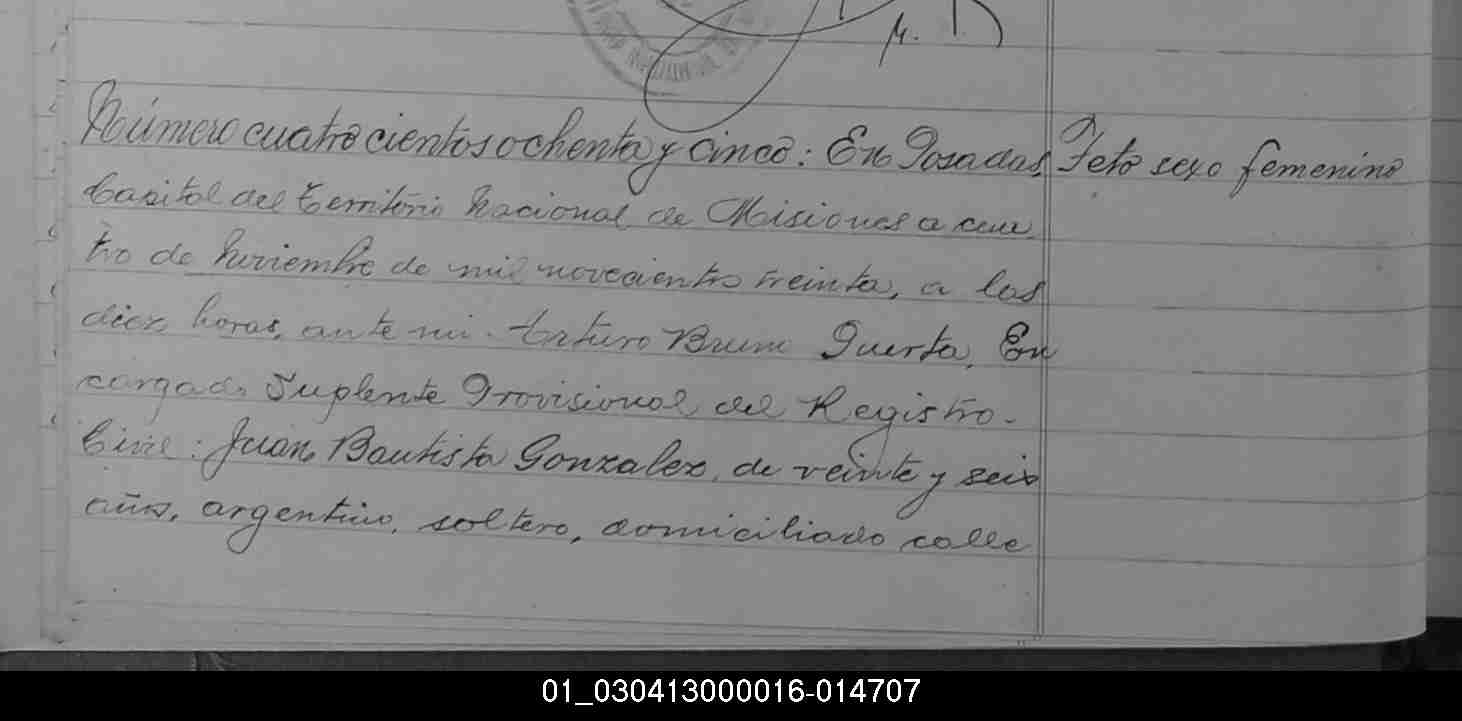 M. P.
Número cuatrocientos ochenta y cinco: En Posadas,
Feto sexo femenino
Capital del Territorio Nacional de Misiones a cua
tro de Noviembre de mil novecientos treinta, a las
diez horas, ante mi Arturo Bruno Puerta, En
cargado Suplente Provisional del Registro
Civil: Juan Bautista Gonzalez, de veinte y seis
años, argentino, soltero, domiciliado calle
01_030413000016-014707